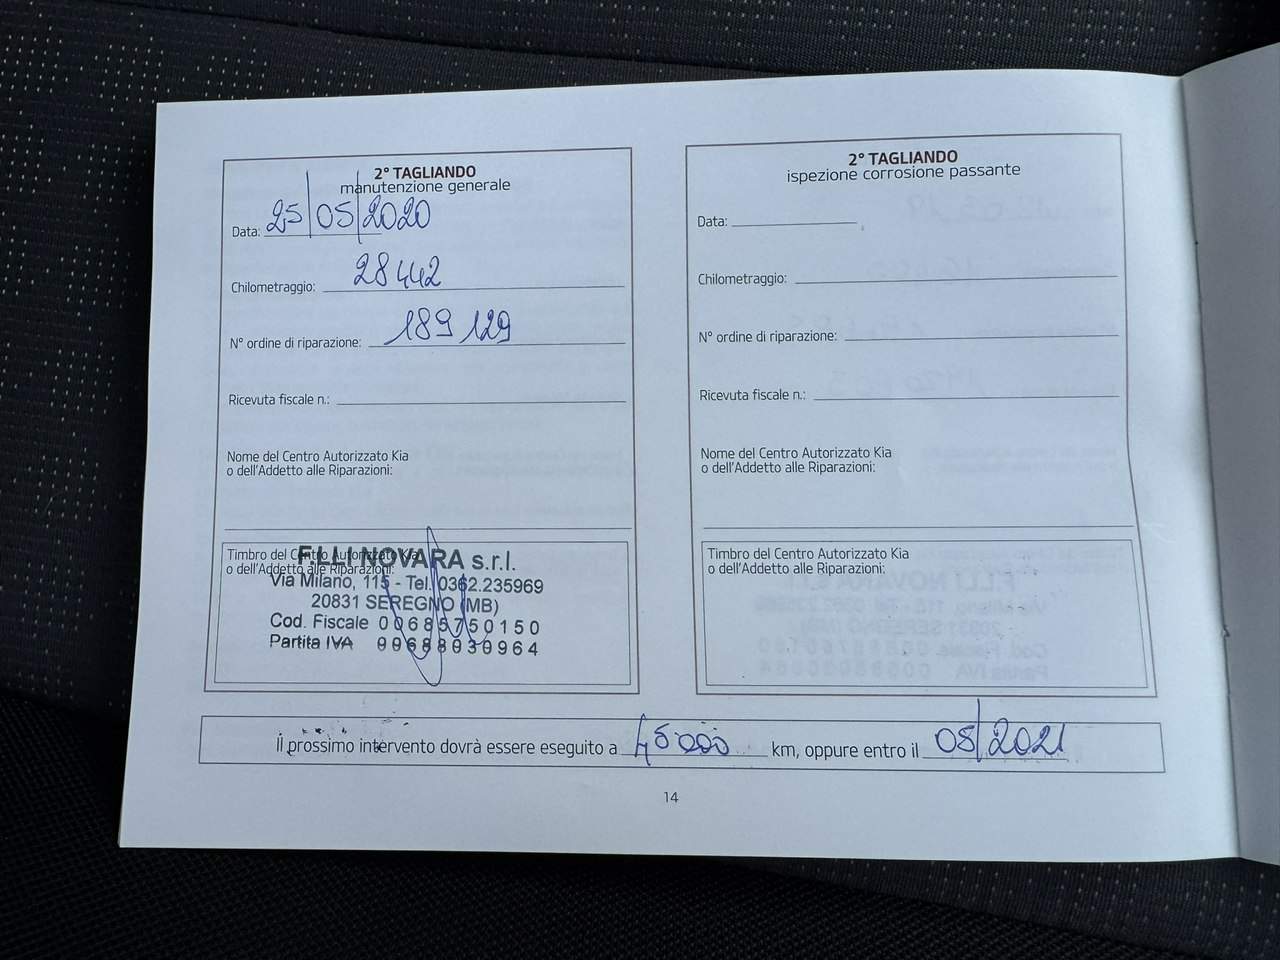 2° TAGLIANDO
manutenzione generale
Data: 25/05/2020
Chilometraggio: 28442
N° ordine di riparazione: 189129
Ricevuta fiscale n.:
Nome del Centro Autorizzato Kia
o dell'Addetto alle Riparazioni:
Timbro del Centro Autorizzato Kia
o dell'Addetto alle Riparazioni:
F.LLI NOVARA s.r.l.
Via Milano, 115 - Tel. 0362.235969
20831 SEREGNO (MB)
Cod. Fiscale 00685750150
Partita IVA 00688030964
2° TAGLIANDO
ispezione corrosione passante
Data:
Chilometraggio:
N° ordine di riparazione:
Ricevuta fiscale n.:
Nome del Centro Autorizzato Kia
o dell'Addetto alle Riparazioni:
Timbro del Centro Autorizzato Kia
o dell'Addetto alle Riparazioni:
Il prossimo intervento dovrà essere eseguito a 45000 km, oppure entro il 05/2021
14